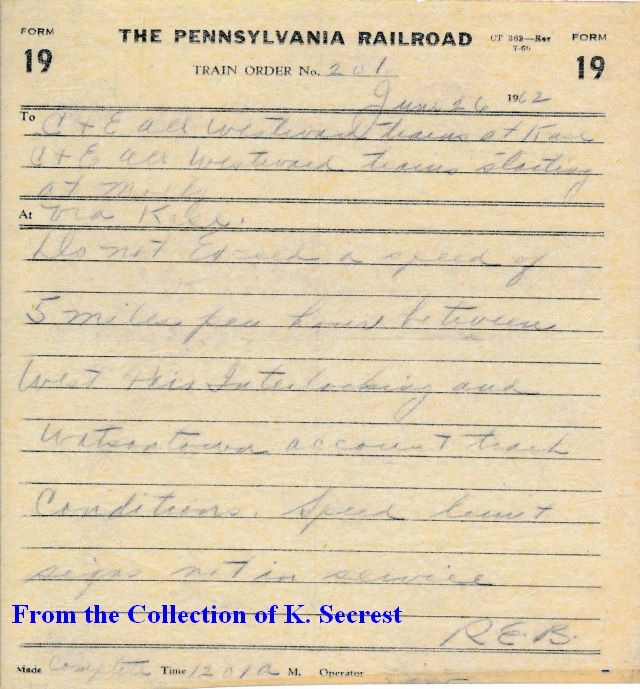 FORM THE PENNSYLVANIA RAILROAD CT 262—Rev 7-60 FORM
19 TRAIN ORDER No. 201 19
June 26 1962
To C + E all Westward trains at Kase
C + E all Westward trains starting
at
At Via Kase.
Do not Exceed a speed of
5 miles per hour between
West this Interlocking and
Watsontown account track
Conditions. Speed limit
signs not in service
From the Collection of K. Secrest
R.E.B.
Made Complete Time 1201 A M. Operator